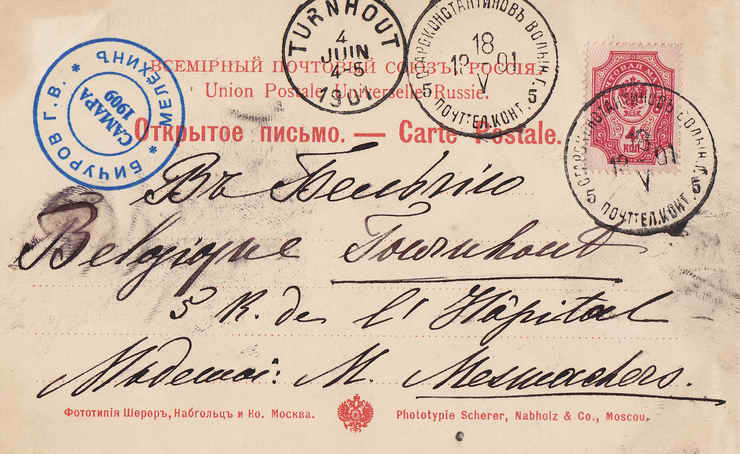 TURNHOUT
4
JUIN
4-5
1901
СТАРОКОНСТАНТИНОВЪ ВОЛЫН. Г.
18
12 01
V
5 ПОЧТ.ТЕЛ.КОНТ. 5
БИЧУРОВ Г. В. * МЕЛЕХИНЪ *
САМАРА
1909
ВСЕМІРНЫЙ ПОЧТОВЫЙ СОЮЗЪ. РОССІЯ.
Union Postale Universelle. Russie.
Открытое письмо. — Carte Postale.
4
КОП.
СТАРОКОНСТАНТИНОВЪ ВОЛЫН. Г.
18
12 01
V
5 ПОЧТ.ТЕЛ.КОНТ. 5
Въ Бельгію
Belgique Tournhout
5 R. de l'Hôpital
Mademoi: M. Mesmachers.
Фототипія Шереръ, Набгольцъ и Ко. Москва.
Phototypie Scherer, Nabholz & Co., Moscou.